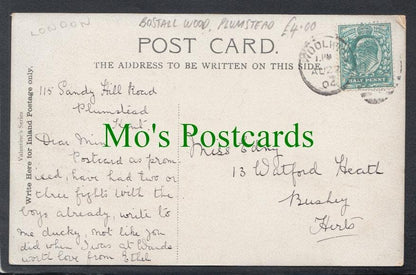 LONDON
BOSTALL WOOD, PLUMSTEAD £4.00
POST CARD.
THE ADDRESS TO BE WRITTEN ON THIS SIDE
WOOLWICH
1 PM
AU 22
HALF PENNY
Valentine's Series
Write Here for Inland Postage only.
115 Sandy Hill Road
Plumstead
Kent.
Dear Min
Postcard as prom
ised, have had two or
three fights with the
boys already, write to
me ducky, not like you
did when I was at Wands
worth love from Ethel
Miss
13 Watford Heath
Bushey
Herts
Mo's Postcards